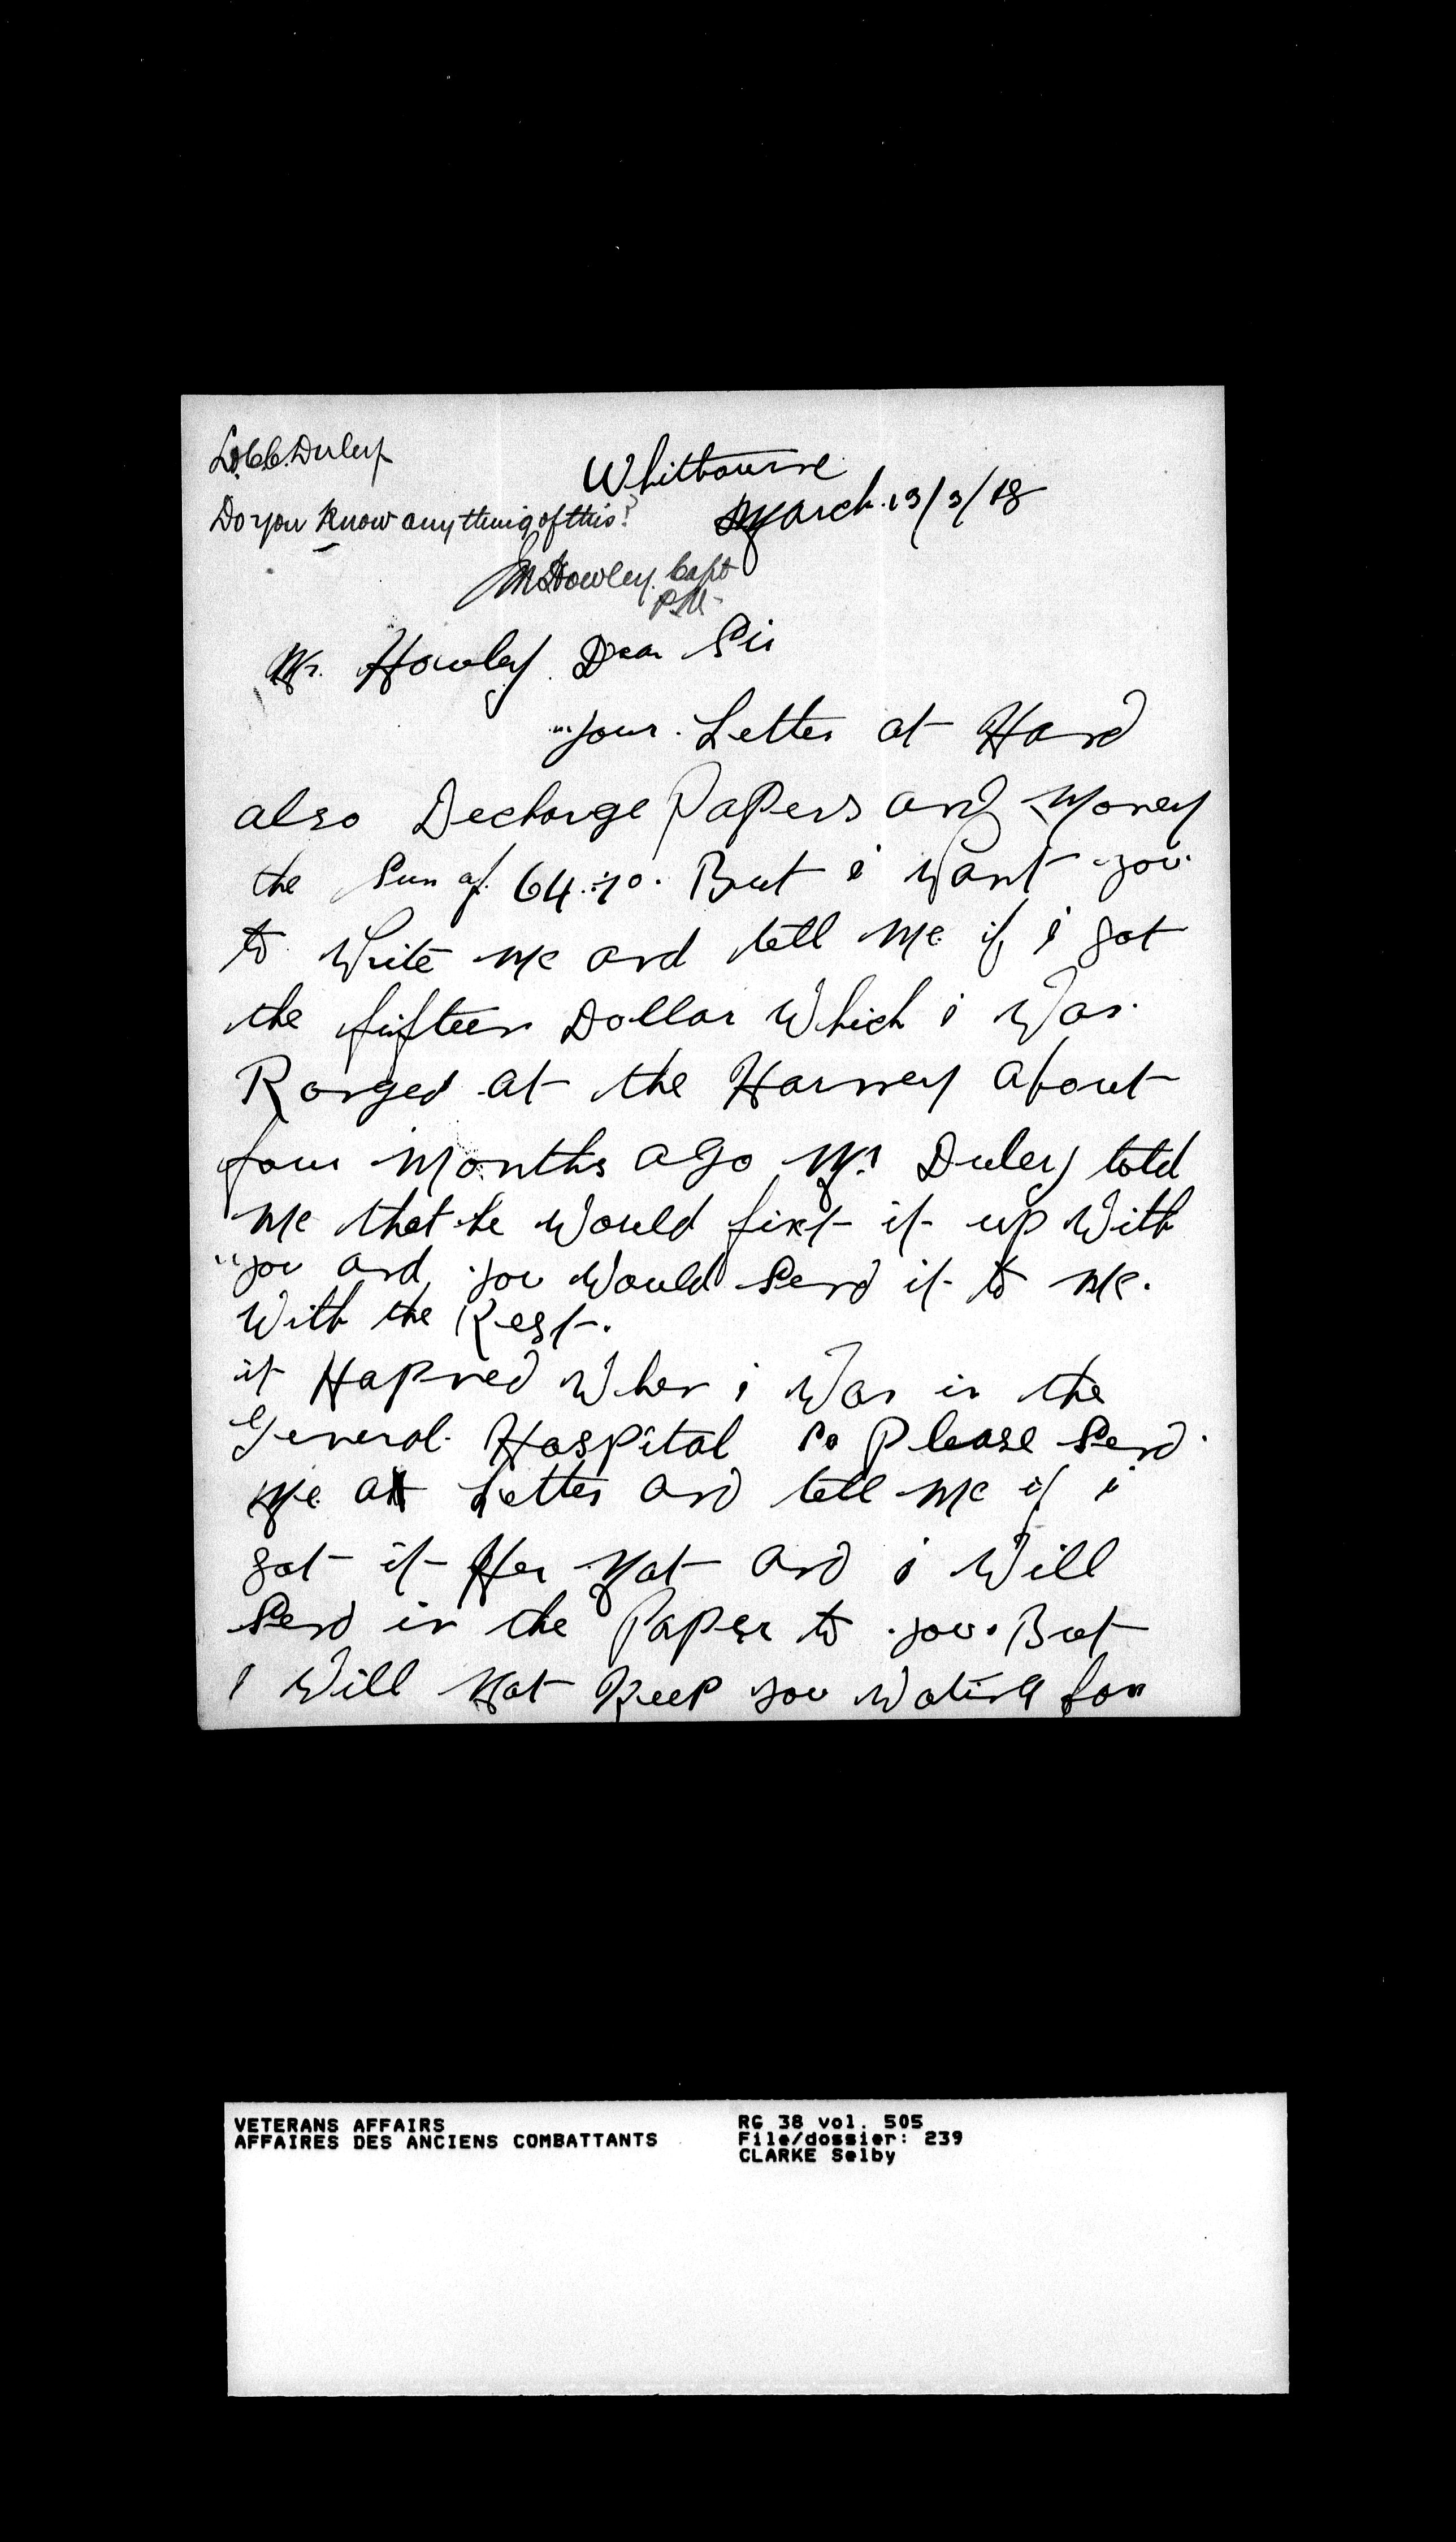 Duley
Whitbourne
Do you Know anything of this?
March. 13/3/18
Howley. Capt
P.M.
Mr. Howley. Dear Sir
your. Letter at Hand
also Decharge Papers and Money
the Sun of. 64.:70. But i want you
to Write me and tell me if i got
the fifteen Dollar Which i Was
at the about
four Months ago Mr Duley told
me that he Would fixt it up With
you and you Would Send it to me.
With the Rest.
it Hapned When i Was in the
General. Hospital So Please Send
me a Letter and tell me if i
got it Her Not and i Will
Send in the Paper to you. But
i Will Not Keep you Wating for
VETERANS AFFAIRS
AFFAIRES DES ANCIENS COMBATTANTS
RG 38 vol. 505
File/dossier: 239
CLARKE Selby